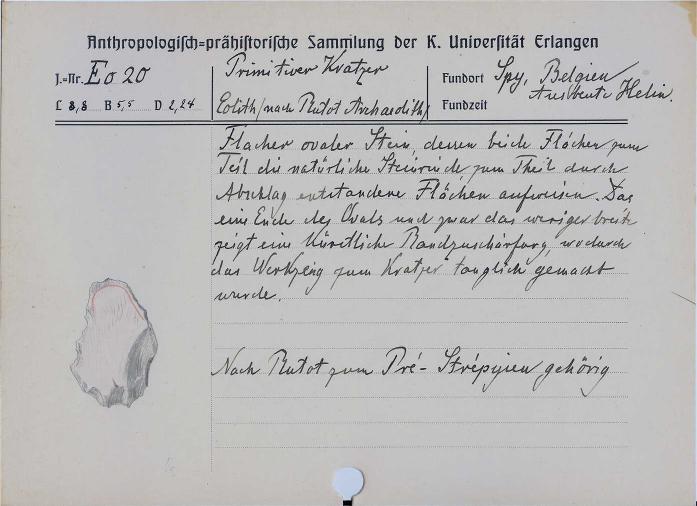 Anthropologisch=prähistorische Sammlung der K. Universität Erlangen
J.=Nr. Eo 20
Primitiver Kratzer
Fundort Spy, Belgien
Ausbeute Helin.
L 8,8 B 5,5 D 2,24
Eolith (nach Rutot Archaeolith)
Fundzeit
Flacher ovaler Stein, dessen beide Flächen zum
Teil die natürliche Steinrinde, zum Theil durch
Abschlag entstandene Flächen aufweisen. Das
eine Ende des Ovals und zwar das weniger breite
zeigt eine künstliche Randzuschärfung, wodurch
das Werkzeug zum Kratzer tauglich gemacht
wurde.
Nach Rutot zum Pré-Strépyien gehörig